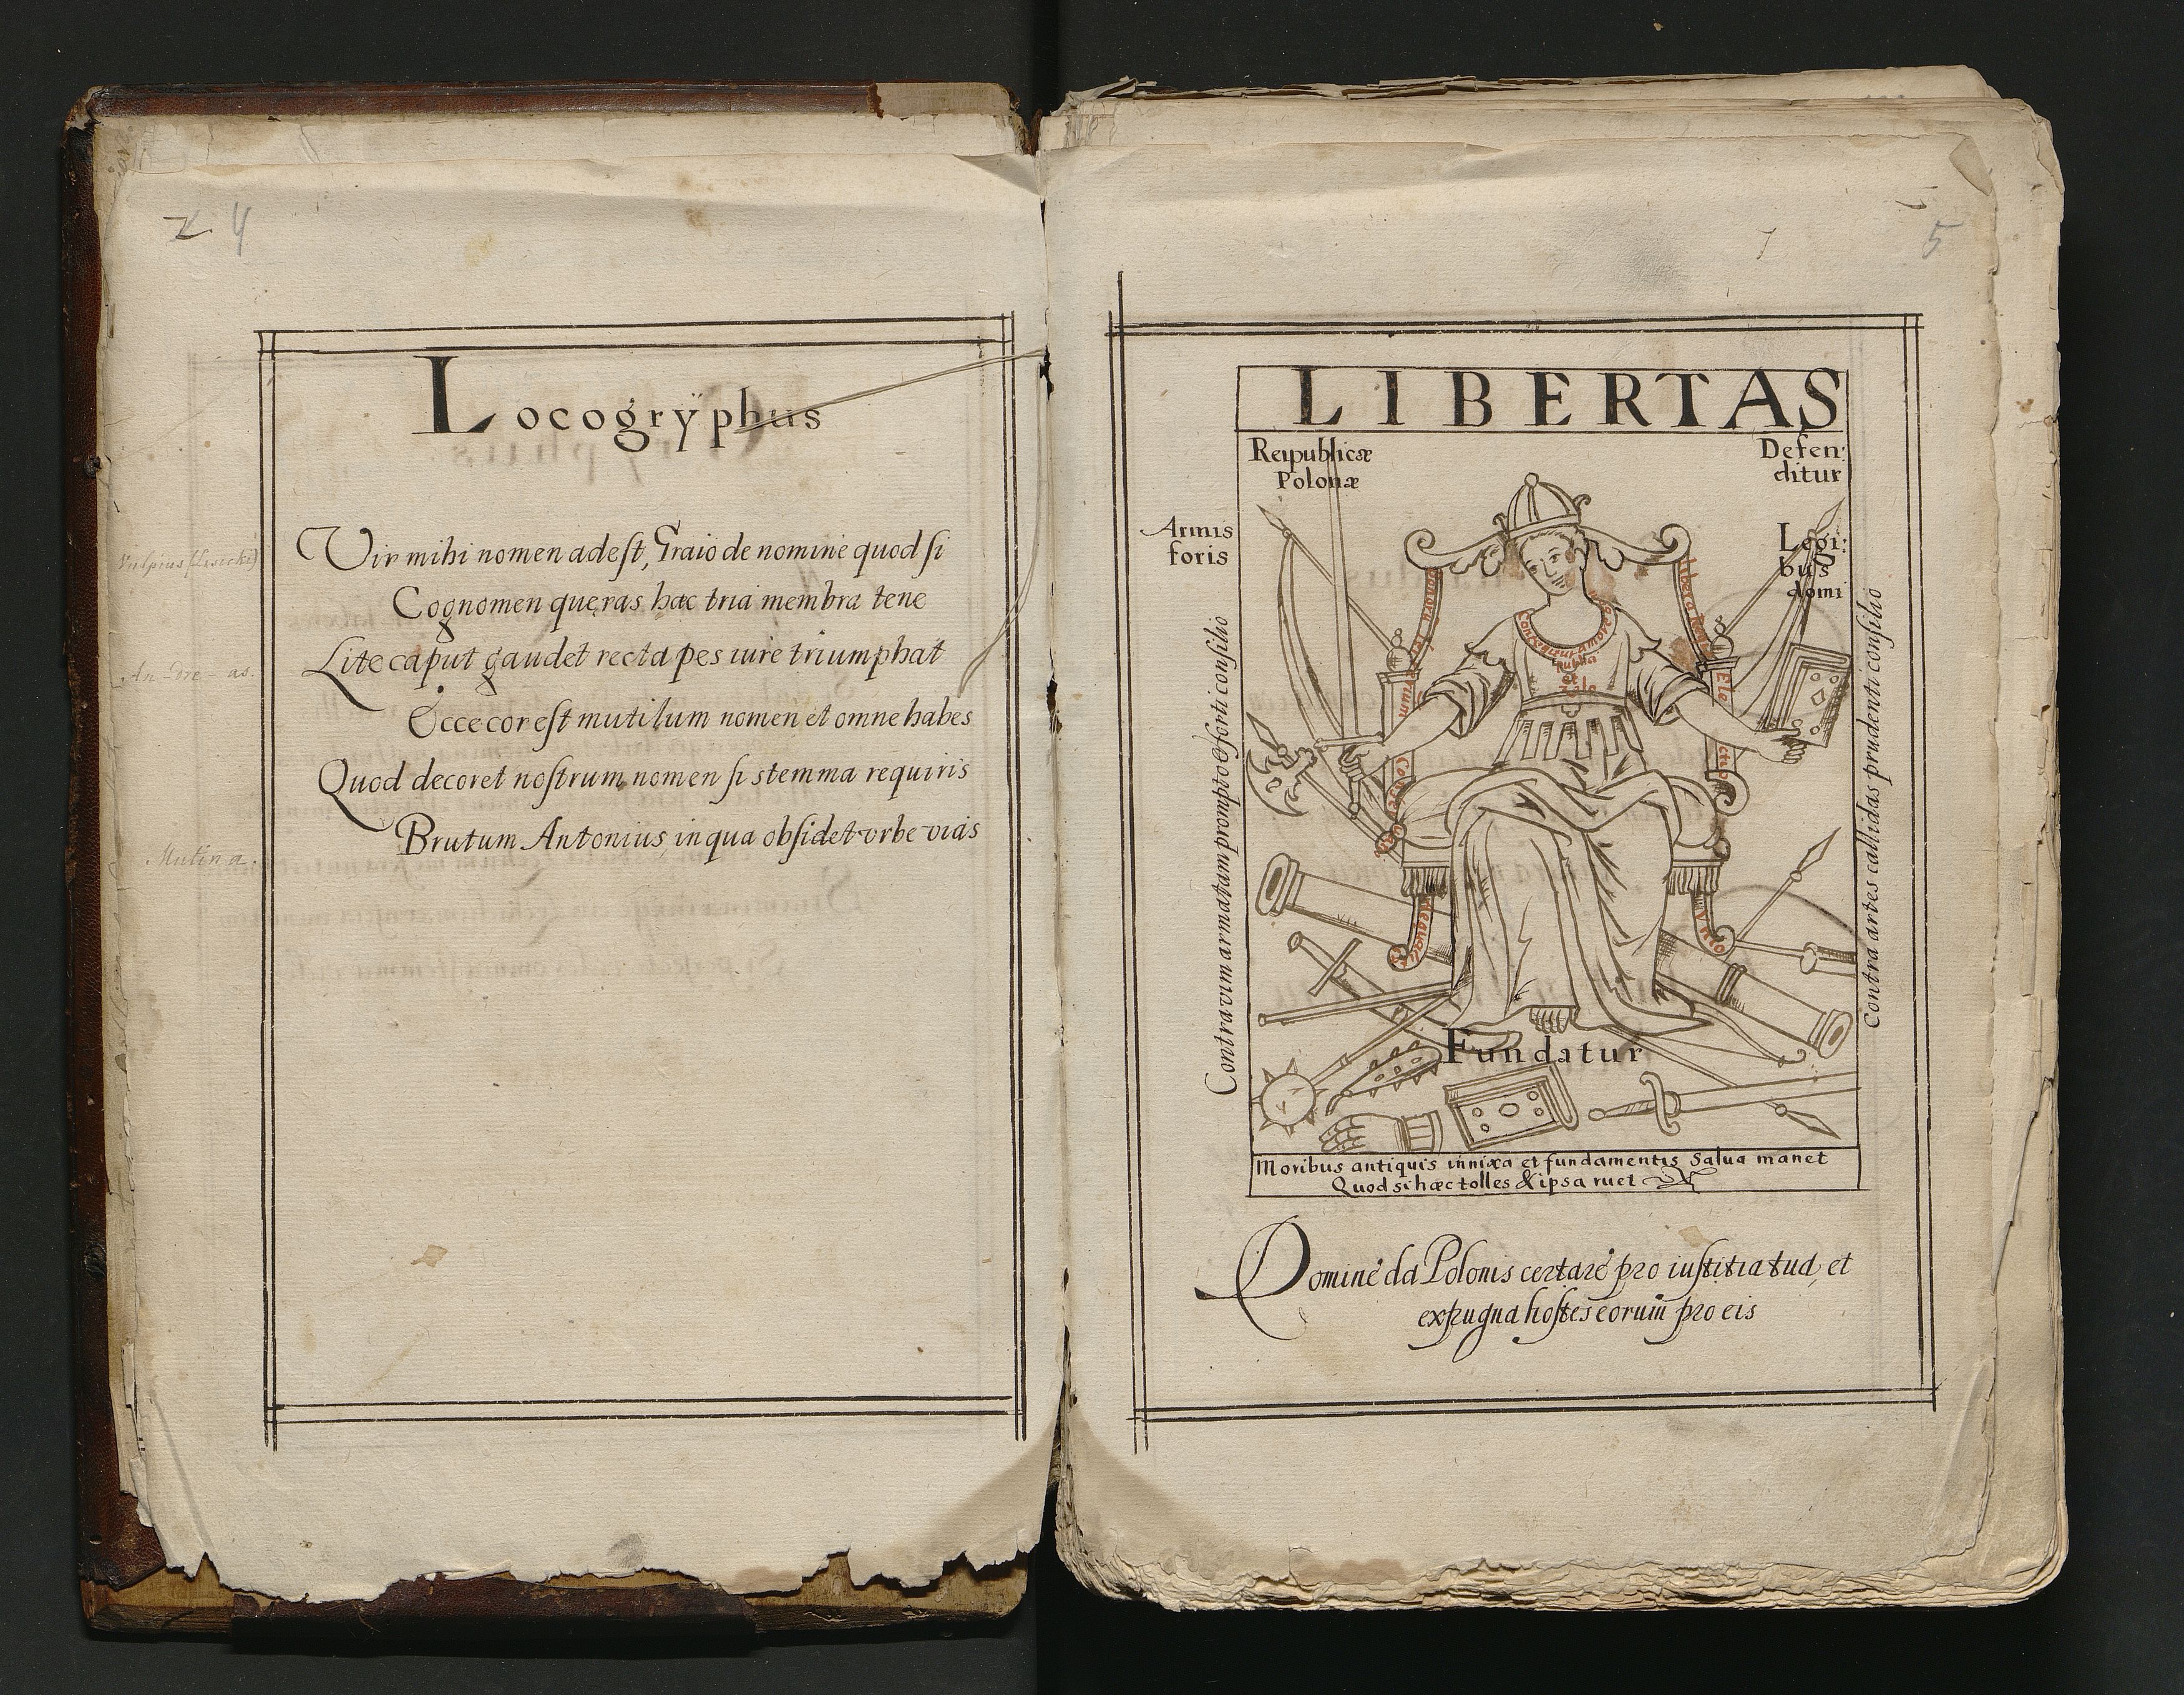 24
Locogrÿphus
Vir mihi nomen adeſt, Graio de nomine quod ſi
Cognomen quęras hæc tria membra tene
Lite caput gaudet recta pes iure triumphat
Ecce cor eſt mutilum nomen et omne habes
Quod decoret noſtrum nomen ſi stemma requiris
Brutum Antonius in qua obſidet vrbe vias
Vulpius (Lisiecki)
An-dre-as.
Mutina.
5
LIBERTAS
Reipublicæ
Polonæ
Defen:
ditur
Armis
foris
Legi:
bus
domi
Contra vim armatam prompto & forti conſilio
Contra artes callidas prudenti conſilio
Libera
Ele
ctio
Fundatur
Moribus antiquis innixa et fundamentis Salua manet
Quod si hæc tolles & ipsa ruet
Domine da Polonis certare pro iuſtitia tua, et
expugna hoſtes eorum pro eis